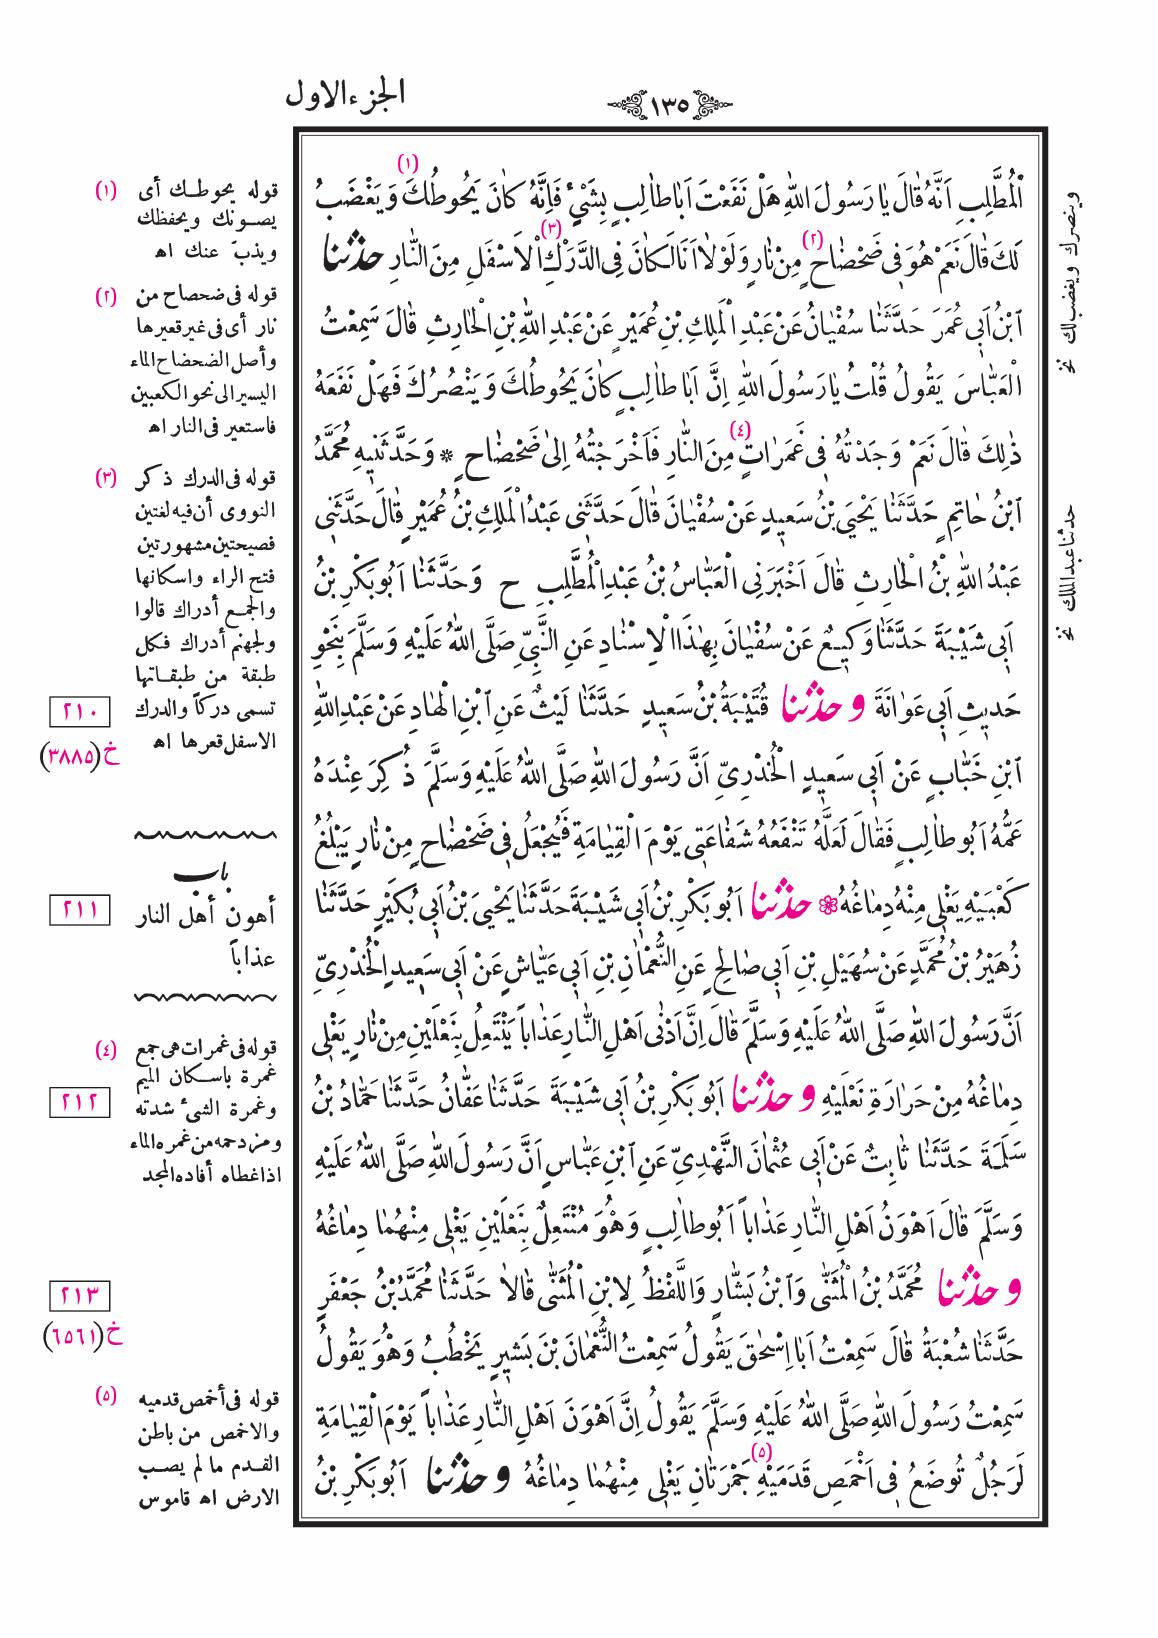 الجزء الاول
١٣٥
الْمُطَّلِبِ اَنَّهُ قَالَ يَا رَسُولَ اللّٰهِ هَلْ نَفَعْتَ اَبَا طَالِبٍ بِشَيْءٍ فَاِنَّهُ كَانَ يَحُوطُكَ (١) وَيَغْضَبُ
لَكَ قَالَ نَعَمْ هُوَ فِى ضَحْضَاحٍ (٢) مِنْ نَارٍ وَلَوْلَا اَنَا لَكَانَ فِى الدَّرْكِ (٣) الْاَسْفَلِ مِنَ النَّارِ حدثنا
ابْنُ اَبِى عُمَرَ حَدَّثَنَا سُفْيَانُ عَنْ عَبْدِ الْمَلِكِ بْنِ عُمَيْرٍ عَنْ عَبْدِ اللّٰهِ بْنِ الْحَارِثِ قَالَ سَمِعْتُ
الْعَبَّاسَ يَقُولُ قُلْتُ يَا رَسُولَ اللّٰهِ اِنَّ اَبَا طَالِبٍ كَانَ يَحُوطُكَ وَيَنْصُرُكَ فَهَلْ نَفَعَهُ
ذٰلِكَ قَالَ نَعَمْ وَجَدْتُهُ فِى غَمَرَاتٍ (٤) مِنَ النَّارِ فَاَخْرَجْتُهُ اِلٰى ضَحْضَاحٍ * وَحَدَّثَنِيهِ مُحَمَّدُ
ابْنُ حَاتِمٍ حَدَّثَنَا يَحْيَى بْنُ سَعِيدٍ عَنْ سُفْيَانَ قَالَ حَدَّثَنِى عَبْدُ الْمَلِكِ بْنُ عُمَيْرٍ قَالَ حَدَّثَنِى
عَبْدُ اللّٰهِ بْنُ الْحَارِثِ قَالَ اَخْبَرَنِى الْعَبَّاسُ بْنُ عَبْدِ الْمُطَّلِبِ ح وَحَدَّثَنَا اَبُو بَكْرِ بْنُ
اَبِى شَيْبَةَ حَدَّثَنَا وَكِيعٌ عَنْ سُفْيَانَ بِهٰذَا الْاِسْنَادِ عَنِ النَّبِىِّ صَلَّى اللّٰهُ عَلَيْهِ وَسَلَّمَ بِنَحْوِ
حَدِيثِ اَبِى عَوَانَةَ و حدثنا قُتَيْبَةُ بْنُ سَعِيدٍ حَدَّثَنَا لَيْثٌ عَنِ ابْنِ الْهَادِ عَنْ عَبْدِ اللّٰهِ
ابْنِ خَبَّابٍ عَنْ اَبِى سَعِيدٍ الْخُدْرِىِّ اَنَّ رَسُولَ اللّٰهِ صَلَّى اللّٰهُ عَلَيْهِ وَسَلَّمَ ذُكِرَ عِنْدَهُ
عَمُّهُ اَبُو طَالِبٍ فَقَالَ لَعَلَّهُ تَنْفَعُهُ شَفَاعَتِى يَوْمَ الْقِيَامَةِ فَيُجْعَلُ فِى ضَحْضَاحٍ مِنْ نَارٍ يَبْلُغُ
كَعْبَيْهِ يَغْلِى مِنْهُ دِمَاغُهُ ❁ حدثنا اَبُو بَكْرِ بْنُ اَبِى شَيْبَةَ حَدَّثَنَا يَحْيَى بْنُ اَبِى بُكَيْرٍ حَدَّثَنَا
زُهَيْرُ بْنُ مُحَمَّدٍ عَنْ سُهَيْلِ بْنِ اَبِى صَالِحٍ عَنِ النُّعْمَانِ بْنِ اَبِى عَيَّاشٍ عَنْ اَبِى سَعِيدٍ الْخُدْرِىِّ
اَنَّ رَسُولَ اللّٰهِ صَلَّى اللّٰهُ عَلَيْهِ وَسَلَّمَ قَالَ اِنَّ اَدْنٰى اَهْلِ النَّارِ عَذَاباً يَنْتَعِلُ بِنَعْلَيْنِ مِنْ نَارٍ يَغْلِى
دِمَاغُهُ مِنْ حَرَارَةِ نَعْلَيْهِ و حدثنا اَبُو بَكْرِ بْنُ اَبِى شَيْبَةَ حَدَّثَنَا عَفَّانُ حَدَّثَنَا حَمَّادُ بْنُ
سَلَمَةَ حَدَّثَنَا ثَابِتٌ عَنْ اَبِى عُثْمَانَ النَّهْدِىِّ عَنِ ابْنِ عَبَّاسٍ اَنَّ رَسُولَ اللّٰهِ صَلَّى اللّٰهُ عَلَيْهِ
وَسَلَّمَ قَالَ اَهْوَنُ اَهْلِ النَّارِ عَذَاباً اَبُو طَالِبٍ وَهُوَ مُنْتَعِلٌ بِنَعْلَيْنِ يَغْلِى مِنْهُمَا دِمَاغُهُ
و حدثنا مُحَمَّدُ بْنُ الْمُثَنّٰى وَابْنُ بَشَّارٍ وَاللَّفْظُ لِابْنِ الْمُثَنّٰى قَالَا حَدَّثَنَا مُحَمَّدُ بْنُ جَعْفَرٍ
حَدَّثَنَا شُعْبَةُ قَالَ سَمِعْتُ اَبَا اِسْحٰقَ يَقُولُ سَمِعْتُ النُّعْمَانَ بْنَ بَشِيرٍ يَخْطُبُ وَهُوَ يَقُولُ
سَمِعْتُ رَسُولَ اللّٰهِ صَلَّى اللّٰهُ عَلَيْهِ وَسَلَّمَ يَقُولُ اِنَّ اَهْوَنَ اَهْلِ النَّارِ عَذَاباً يَوْمَ الْقِيَامَةِ
لَرَجُلٌ تُوضَعُ فِى اَخْمَصِ قَدَمَيْهِ (٥) جَمْرَتَانِ يَغْلِى مِنْهُمَا دِمَاغُهُ و حدثنا اَبُو بَكْرِ بْنُ
وينصرك ويغضب لك نخ
حدثنا عبد الملك نخ
(١) قوله يحوطك أى
يصونك ويحفظك
ويذبّ عنك اه
(٢) قوله فى ضحضاح من
نار أى فى غير قعيرها
وأصل الضحضاح الماء
اليسير الى نحو الكعبين
فاستعير فى النار اه
(٣) قوله فى الدرك ذكر
النووى أن فيه لغتين
فصيحتين مشهورتين
فتح الراء واسكانها
والجمع أدراك قالوا
ولجهنم أدراك فكل
طبقة من طبقاتها
تسمى دركاً والدرك
الاسفل قعرها اه
٢١٠
خ (٣٨٨٥)
باب
أهون أهل النار
عذاباً
٢١١
(٤) قوله فى غمرات هى جمع
غمرة باسكان الميم
وغمرة الشئ شدته
ومزدحمه من غمره الماء
اذا غطاه أفاده المجد
٢١٢
٢١٣
خ (٦٥٦١)
(٥) قوله فى أخمص قدميه
والاخمص من باطن
القدم ما لم يصب
الارض اه قاموس